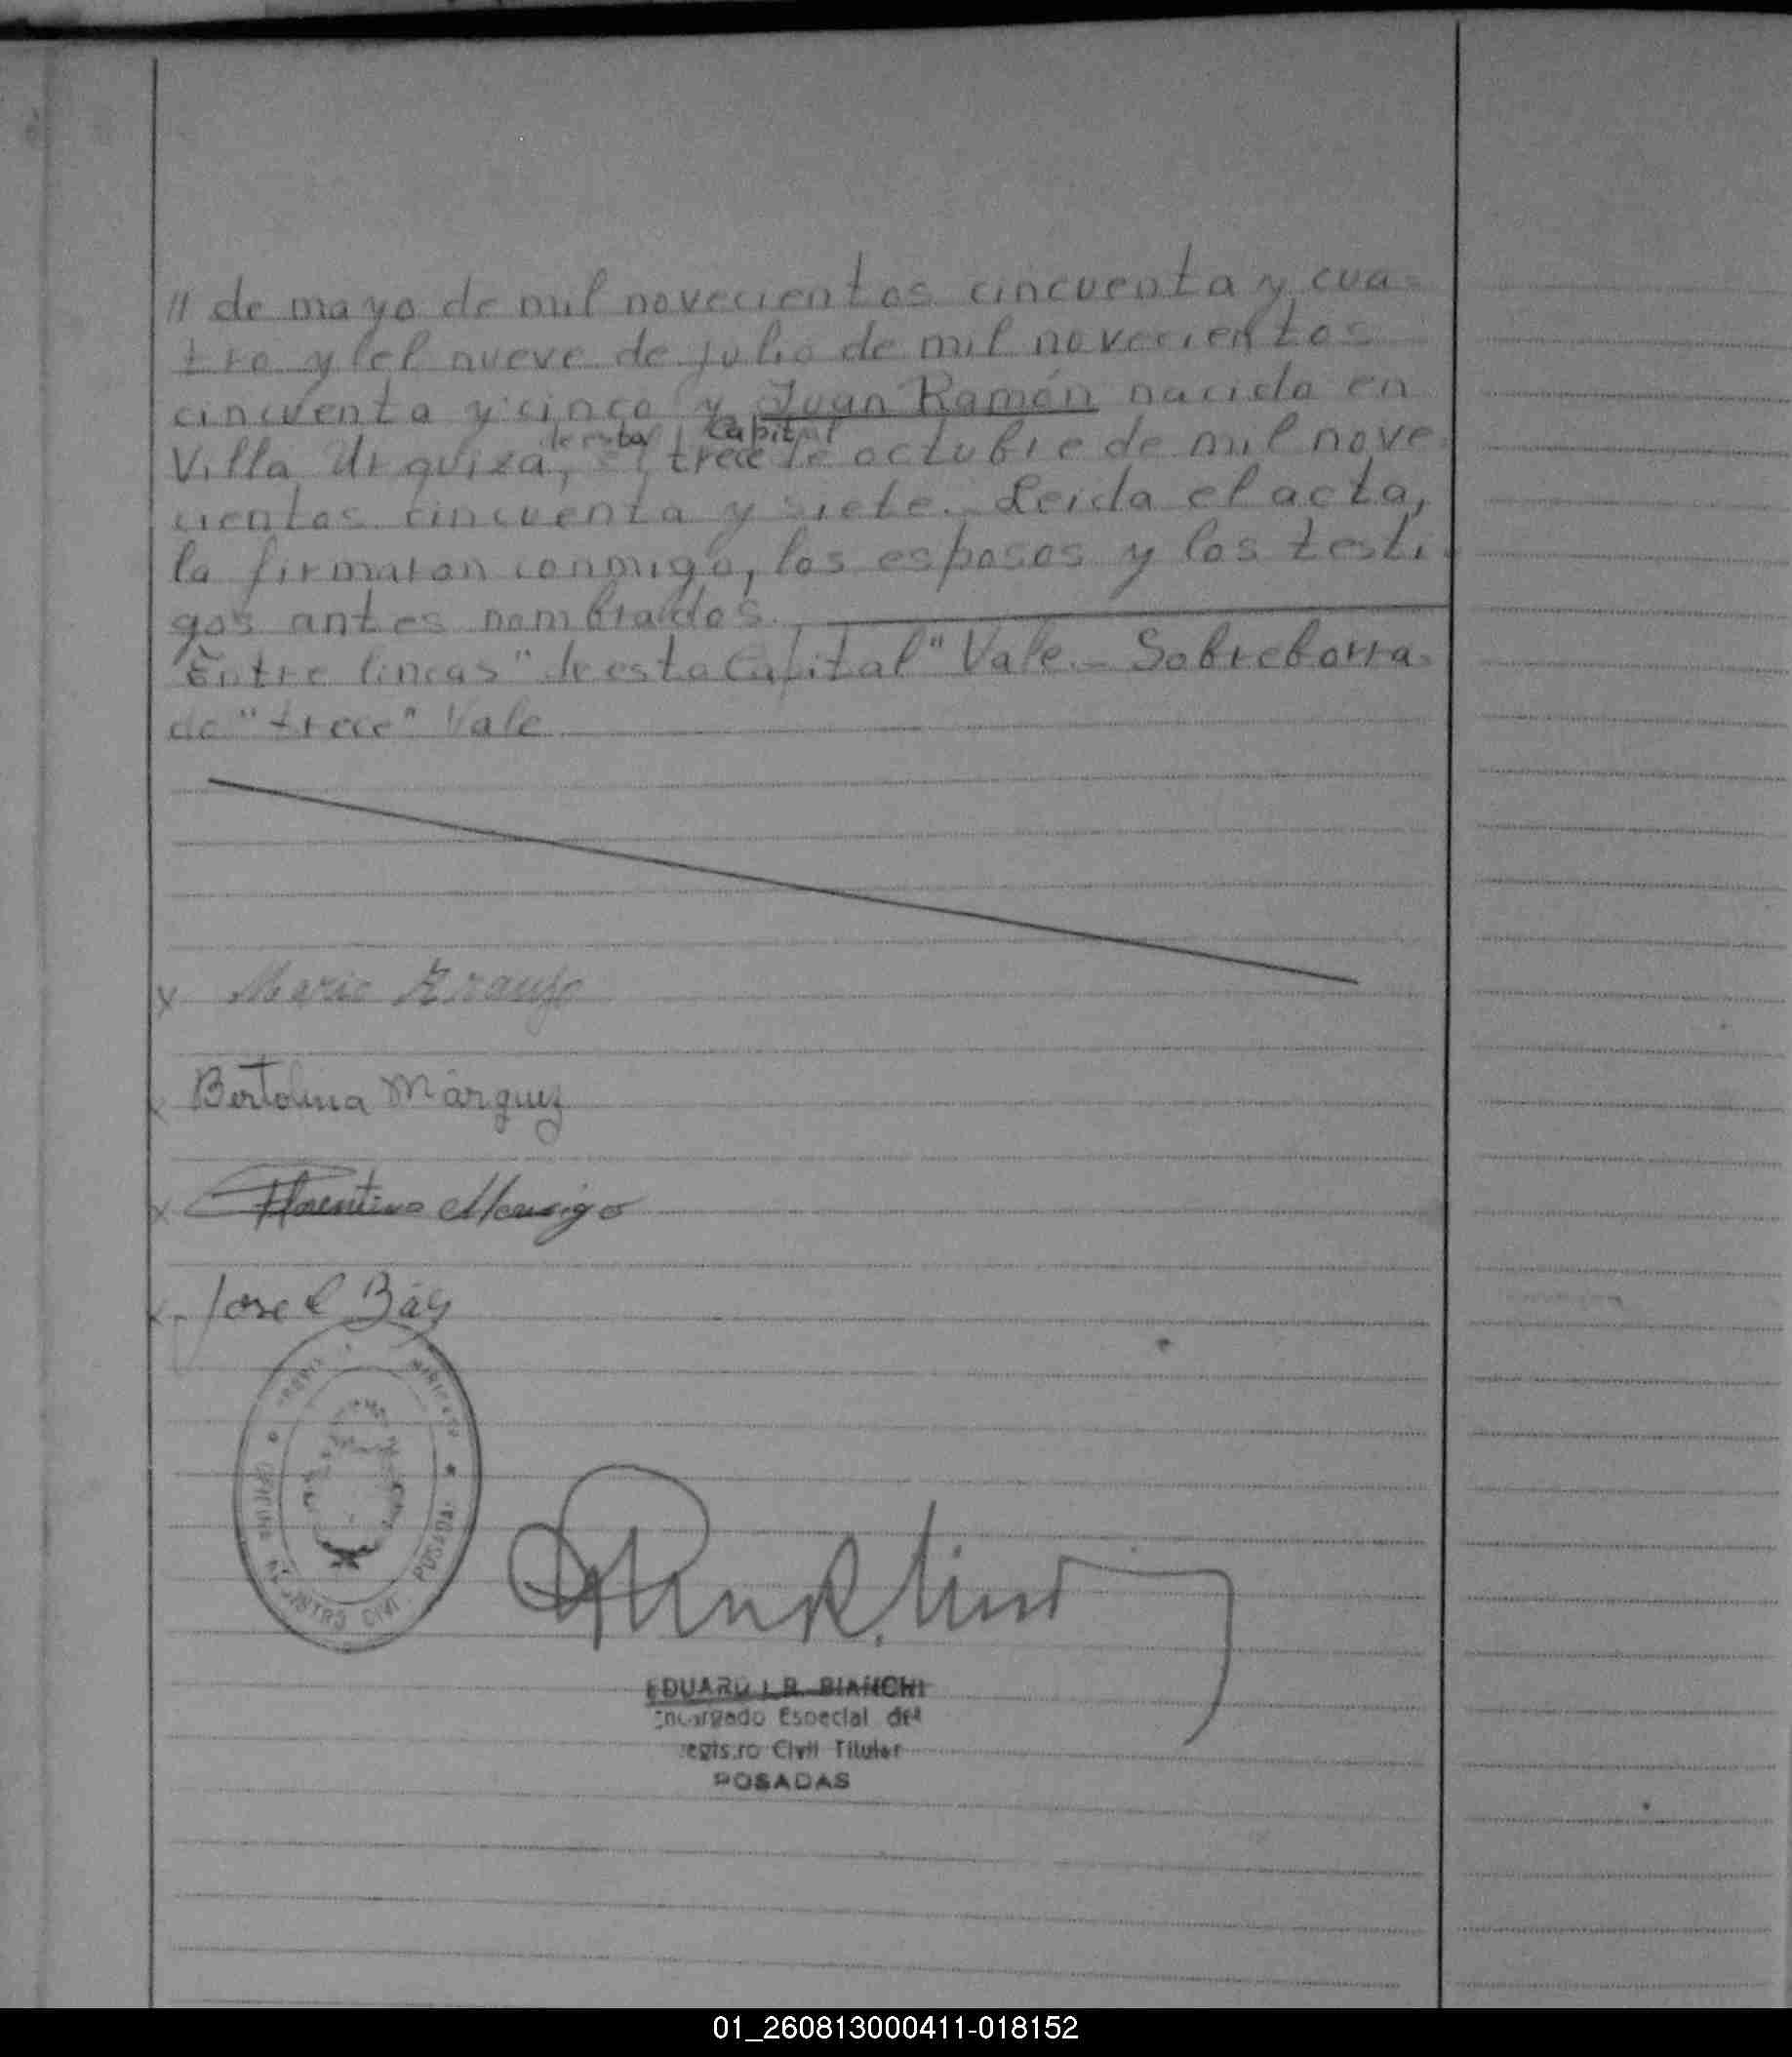 // de mayo de mil novecientos cincuenta y cua-
tro y el nueve de julio de mil novecientos
cincuenta y cinco y Juan Ramón nacido en
de esta Capital
Villa Urquiza, el trece de octubre de mil nove-
cientos cincuenta y siete.- Leida el acta,
la firmaron conmigo, los esposos y los testi-
gos antes nombrados.
Entre lineas "de esta Capital" Vale.- Sobreborra-
do "trece" Vale
x Mario Araujo
x Bertolina Márquez
x Florentino
x Jose Báez
OFICINA REGISTRO CIVIL POSADAS
EDUARDO R. BIANCHI
Encargado Especial del
Registro Civil Titular
POSADAS
01_260813000411-018152